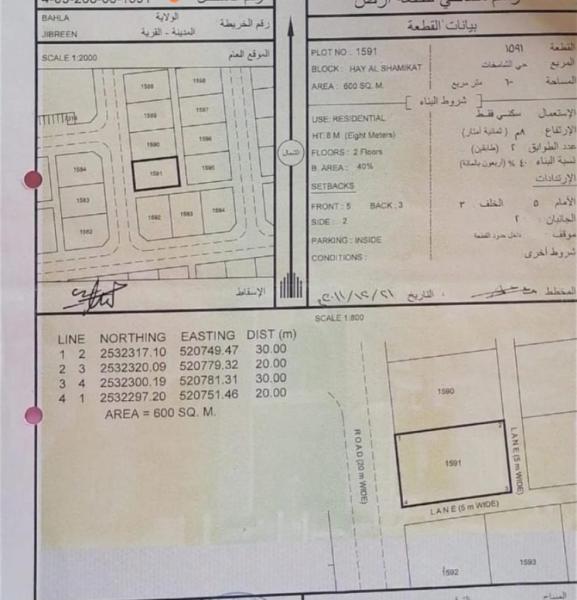 BAHLA
الولاية
JIBREEN
المدينة - القرية
رقم الخريطة
SCALE 1:2000
الموقع العام
1588
1598
1589
1597
1590
1596
1591
1595
1584
1583
1582
1592
1593
1594
الشمال
الإسقاط
بيانات القطعة
PLOT NO : 1591
١٥٩١
القطعة
BLOCK : HAY AL SHAMIKAT
حي الشامخات
المربع
AREA : 600 SQ. M.
متر مربع
المساحة
شروط البناء
USE: RESIDENTIAL
سكني فقط
الإستعمال
HT: 8 M (Eight Meters)
٨م (ثمانية أمتار)
الإرتفاع
FLOORS : 2 Floors
٢ (طابقين)
عدد الطوابق
B. AREA : 40%
٤٠ % (أربعون بالمائة)
نسبة البناء
SETBACKS
الإرتدادات
FRONT : 5 BACK : 3
الخلف ٣
الأمام ٥
SIDE : 2
الجانبان ٢
PARKING : INSIDE
داخل حدود القطعة
موقف
CONDITIONS :
شروط أخرى
التاريخ
المخطط
SCALE 1:800
LINE NORTHING EASTING DIST (m)
1 2 2532317.10 520749.47 30.00
2 3 2532320.09 520779.32 20.00
3 4 2532300.19 520781.31 30.00
4 1 2532297.20 520751.46 20.00
AREA = 600 SQ. M.
1590
1
2
1591
3
4
ROAD (20 m WIDE)
LANE (5 m WIDE)
LANE (5 m WIDE)
1592
1593